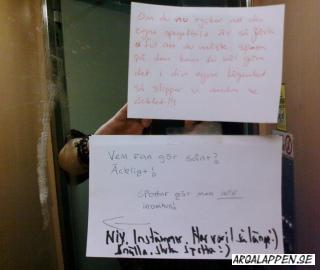 Om du nu tycker att din
egna spegelbild är så jävla
ful att du måste spotta
på den kan du väl göra
det i din egna lägenhet
så slipper vi andra se
äcklet!!!
Vem fan gör sånt?
Äckligt!
Spottar gör man
inomhus
Niv. Instämmer. Har varit så länge!)
Snälla. Sluta spotta :)
ARGALAPPEN.SE